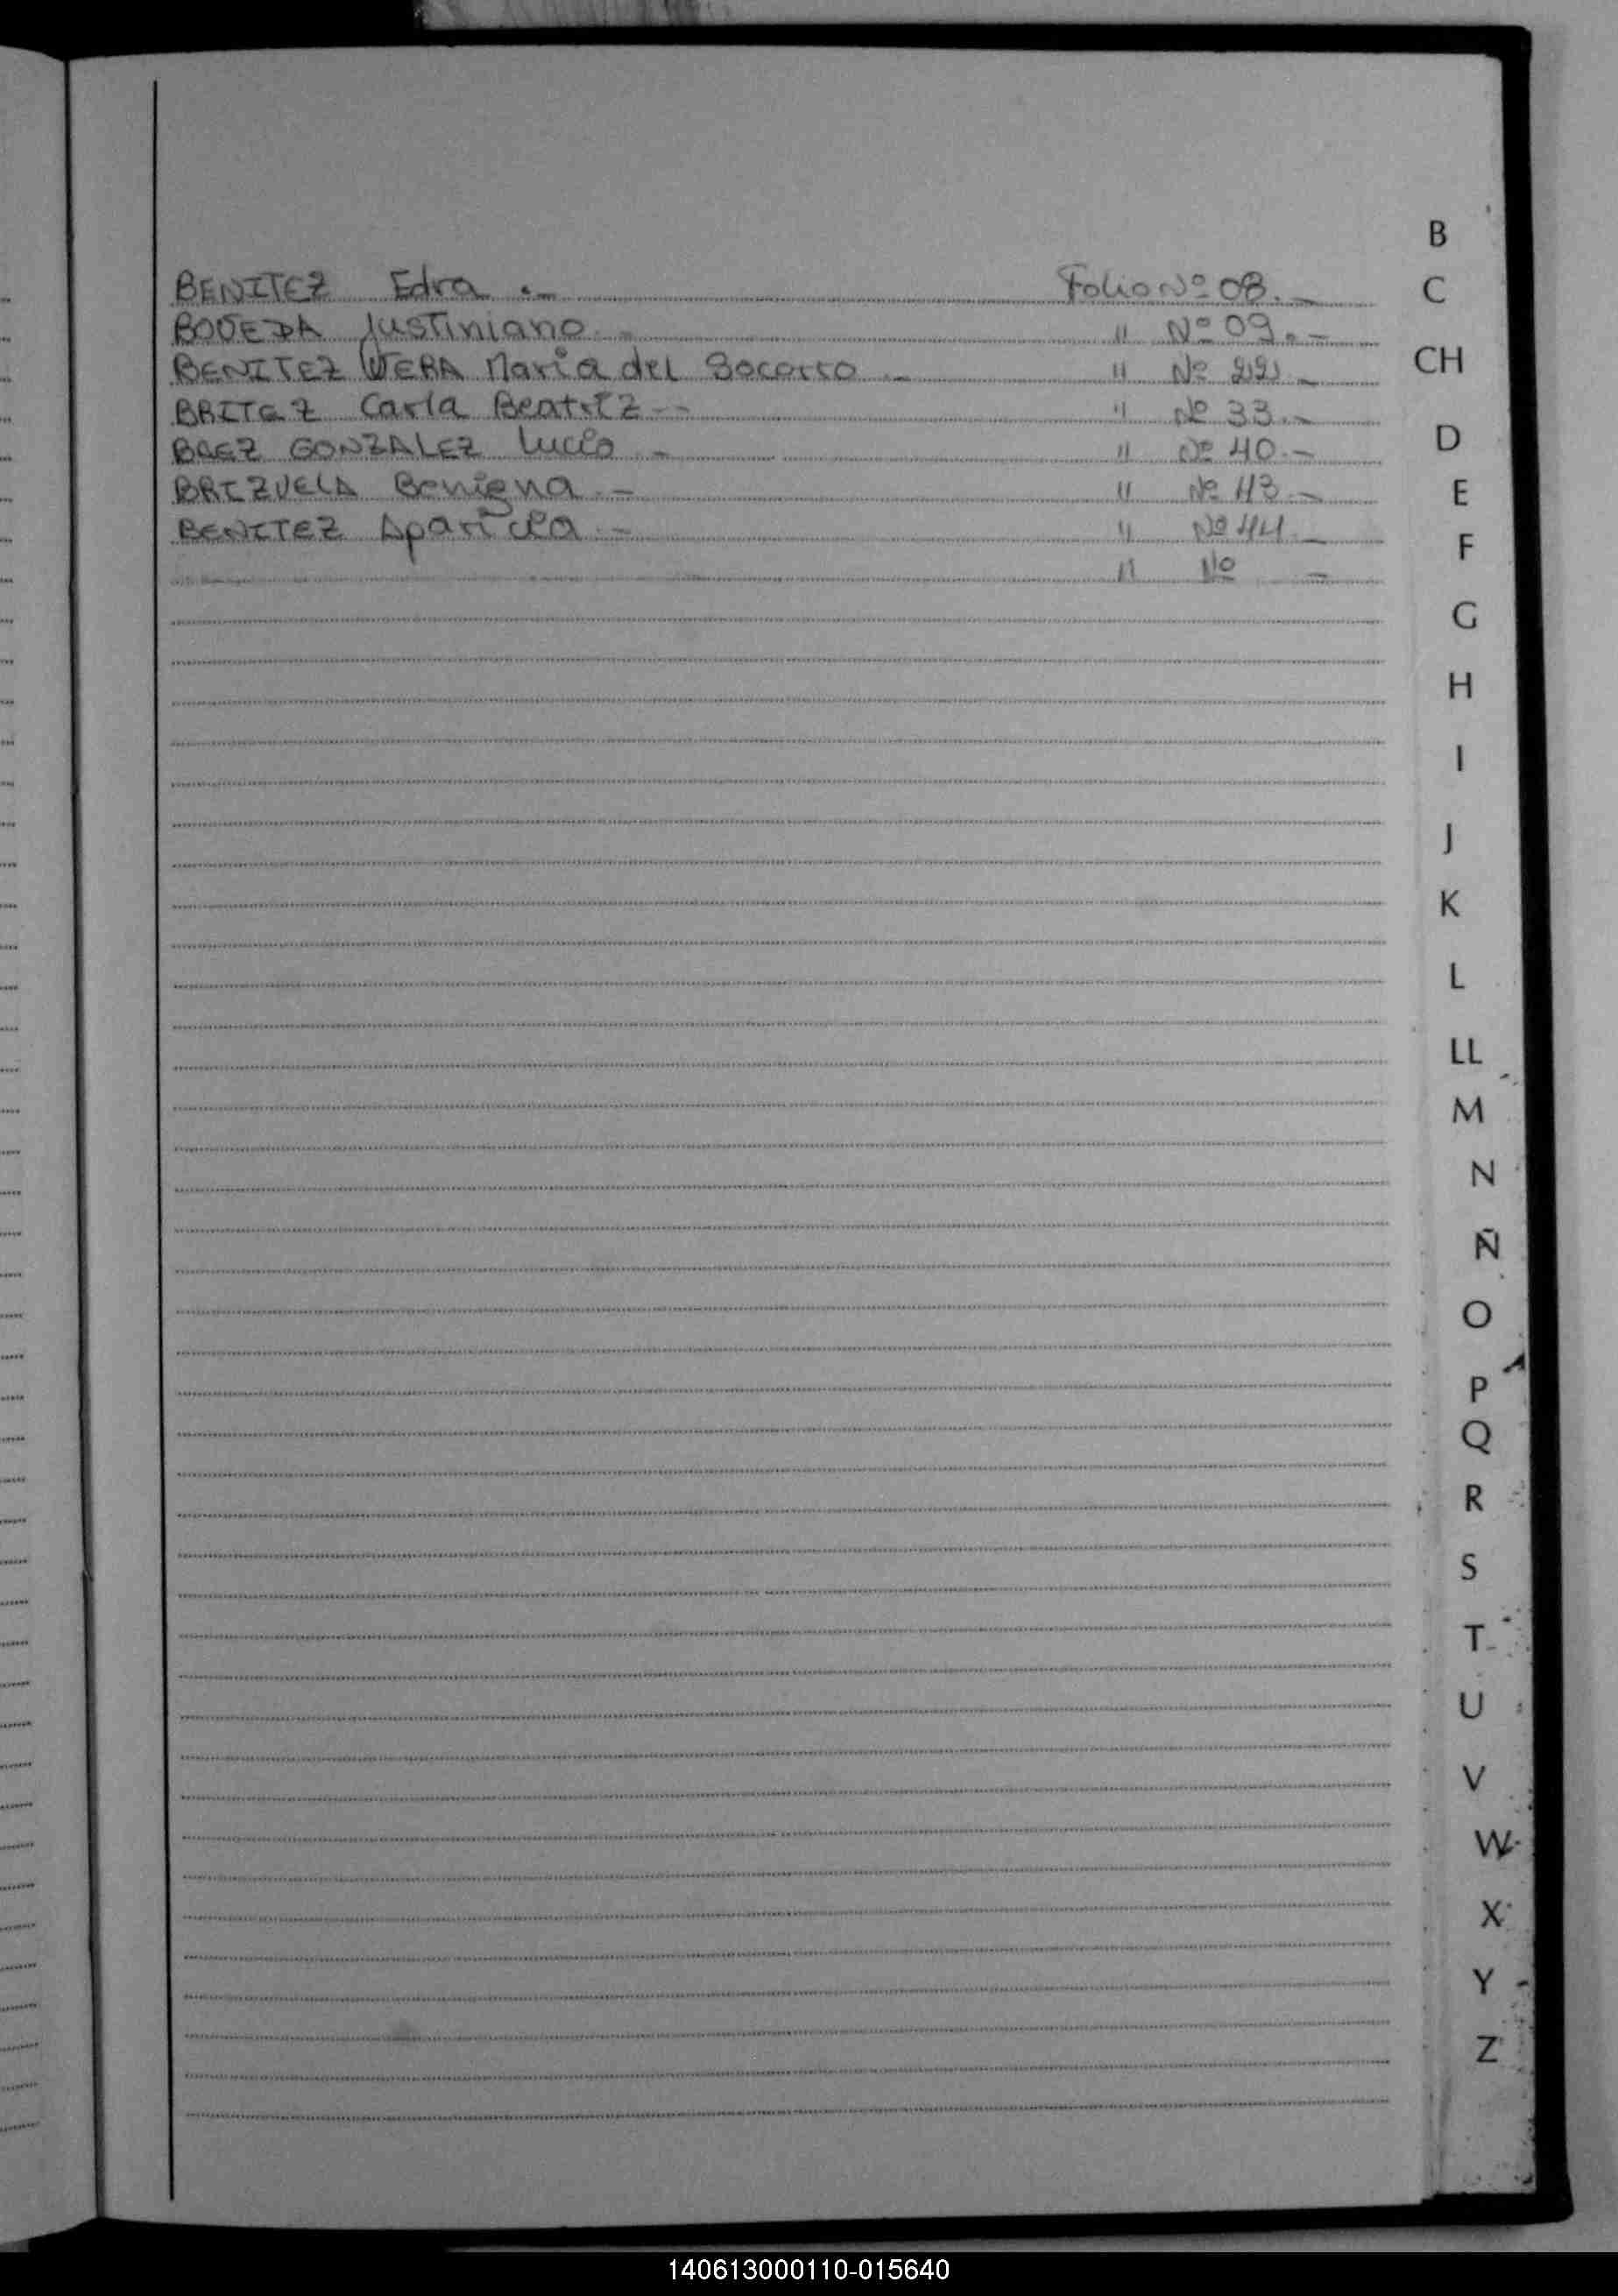 BENITEZ Edra .- Folio Nº 08.-
BOVEDA Justiniano.- " Nº 09.-
BENITEZ VERA Maria del Socorro.- " Nº 22.-
BRITEZ Carla Beatriz.- " Nº 33.-
BAEZ GONZALEZ Lucio.- " Nº 40.-
BRIZUELA Benigna.- " Nº 43.-
BENITEZ Aparicia.- " Nº 44.-
" Nº -
B
C
CH
D
E
F
G
H
I
J
K
L
LL
M
N
Ñ
O
P
Q
R
S
T
U
V
W
X
Y
Z
140613000110-015640